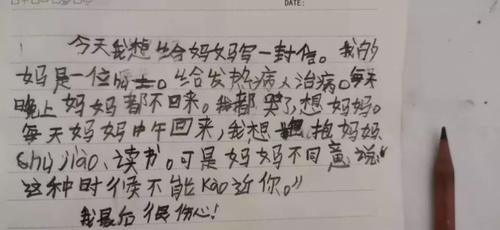 DATE:
今天我想给妈妈写一封信。我的
妈是一位 。给发热病人治病。每天
晚上妈妈都不回来。我都哭了想妈妈。
每天妈妈中午回来,我想抱妈妈
Shuijiao、读书。可是妈妈不同意说“
这种时候不能kao近你。”
我最后很伤心!